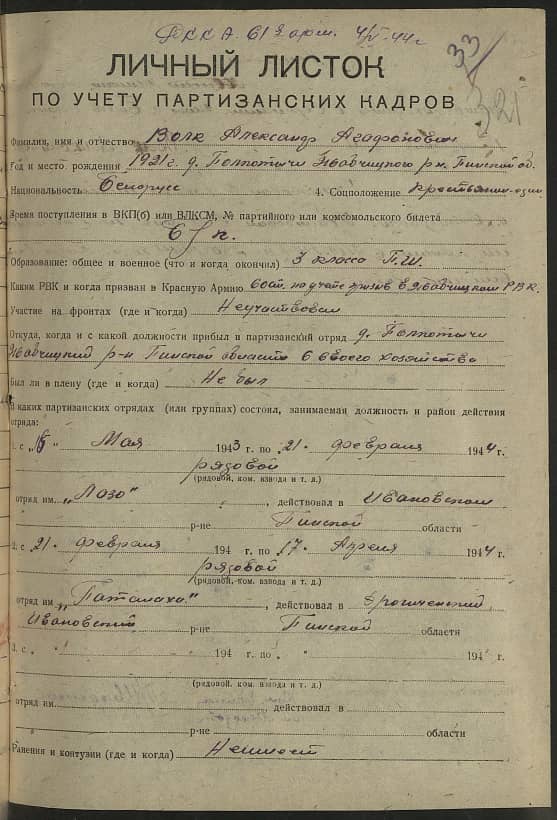 РККА 61 я арм. 4/VI-44г
33
321
ЛИЧНЫЙ ЛИСТОК
ПО УЧЕТУ ПАРТИЗАНСКИХ КАДРОВ
Фамилия, имя и отчество Волк Александр Агафонович
Год и место рождения 1921 г. д. Полпотычи Жабчицкого р-н. Пинской об.
Национальность Белорус 4. Соцположение крестьянин-
Время поступления в ВКП(б) или ВЛКСМ, № партийного или комсомольского билета
б/п.
Образование: общее и военное (что и когда окончил) 3 класса П.Ш.
Каким РВК и когда призван в Красную Армию на учете в Жабчицком РВК.
Участие на фронтах (где и когда) Не участвовал
Откуда, когда и с какой должности прибыл в партизанский отряд д. Полпотычи
Жабчицкий р-н Пинской области с своего хозяйства
был ли в плену (где и когда) Не был
В каких партизанских отрядах (или группах) состоял, занимаемая должность и район действия
отряда:
1. с „15" Мая 1943 г. по „21" февраля 1944 г.
рядовой
(рядовой, ком. взвода и т. д.)
отряд им. „Лазо" , действовал в Ивановском
р-не Пинской области
2. с 21 февраля 194 г. по „17" Апреля 1944 г.
рядовой
(рядовой, ком. взвода и т. д.)
отряд им „Паталаха" , действовал в Дрогиченский
Ивановский р-не Пинской области
3. с 194 г. по 194 г.
(рядовой, ком. взвода и т. д.)
отряд им. , действовал в
р-не области
Ранения и контузии (где и когда) Не имеет